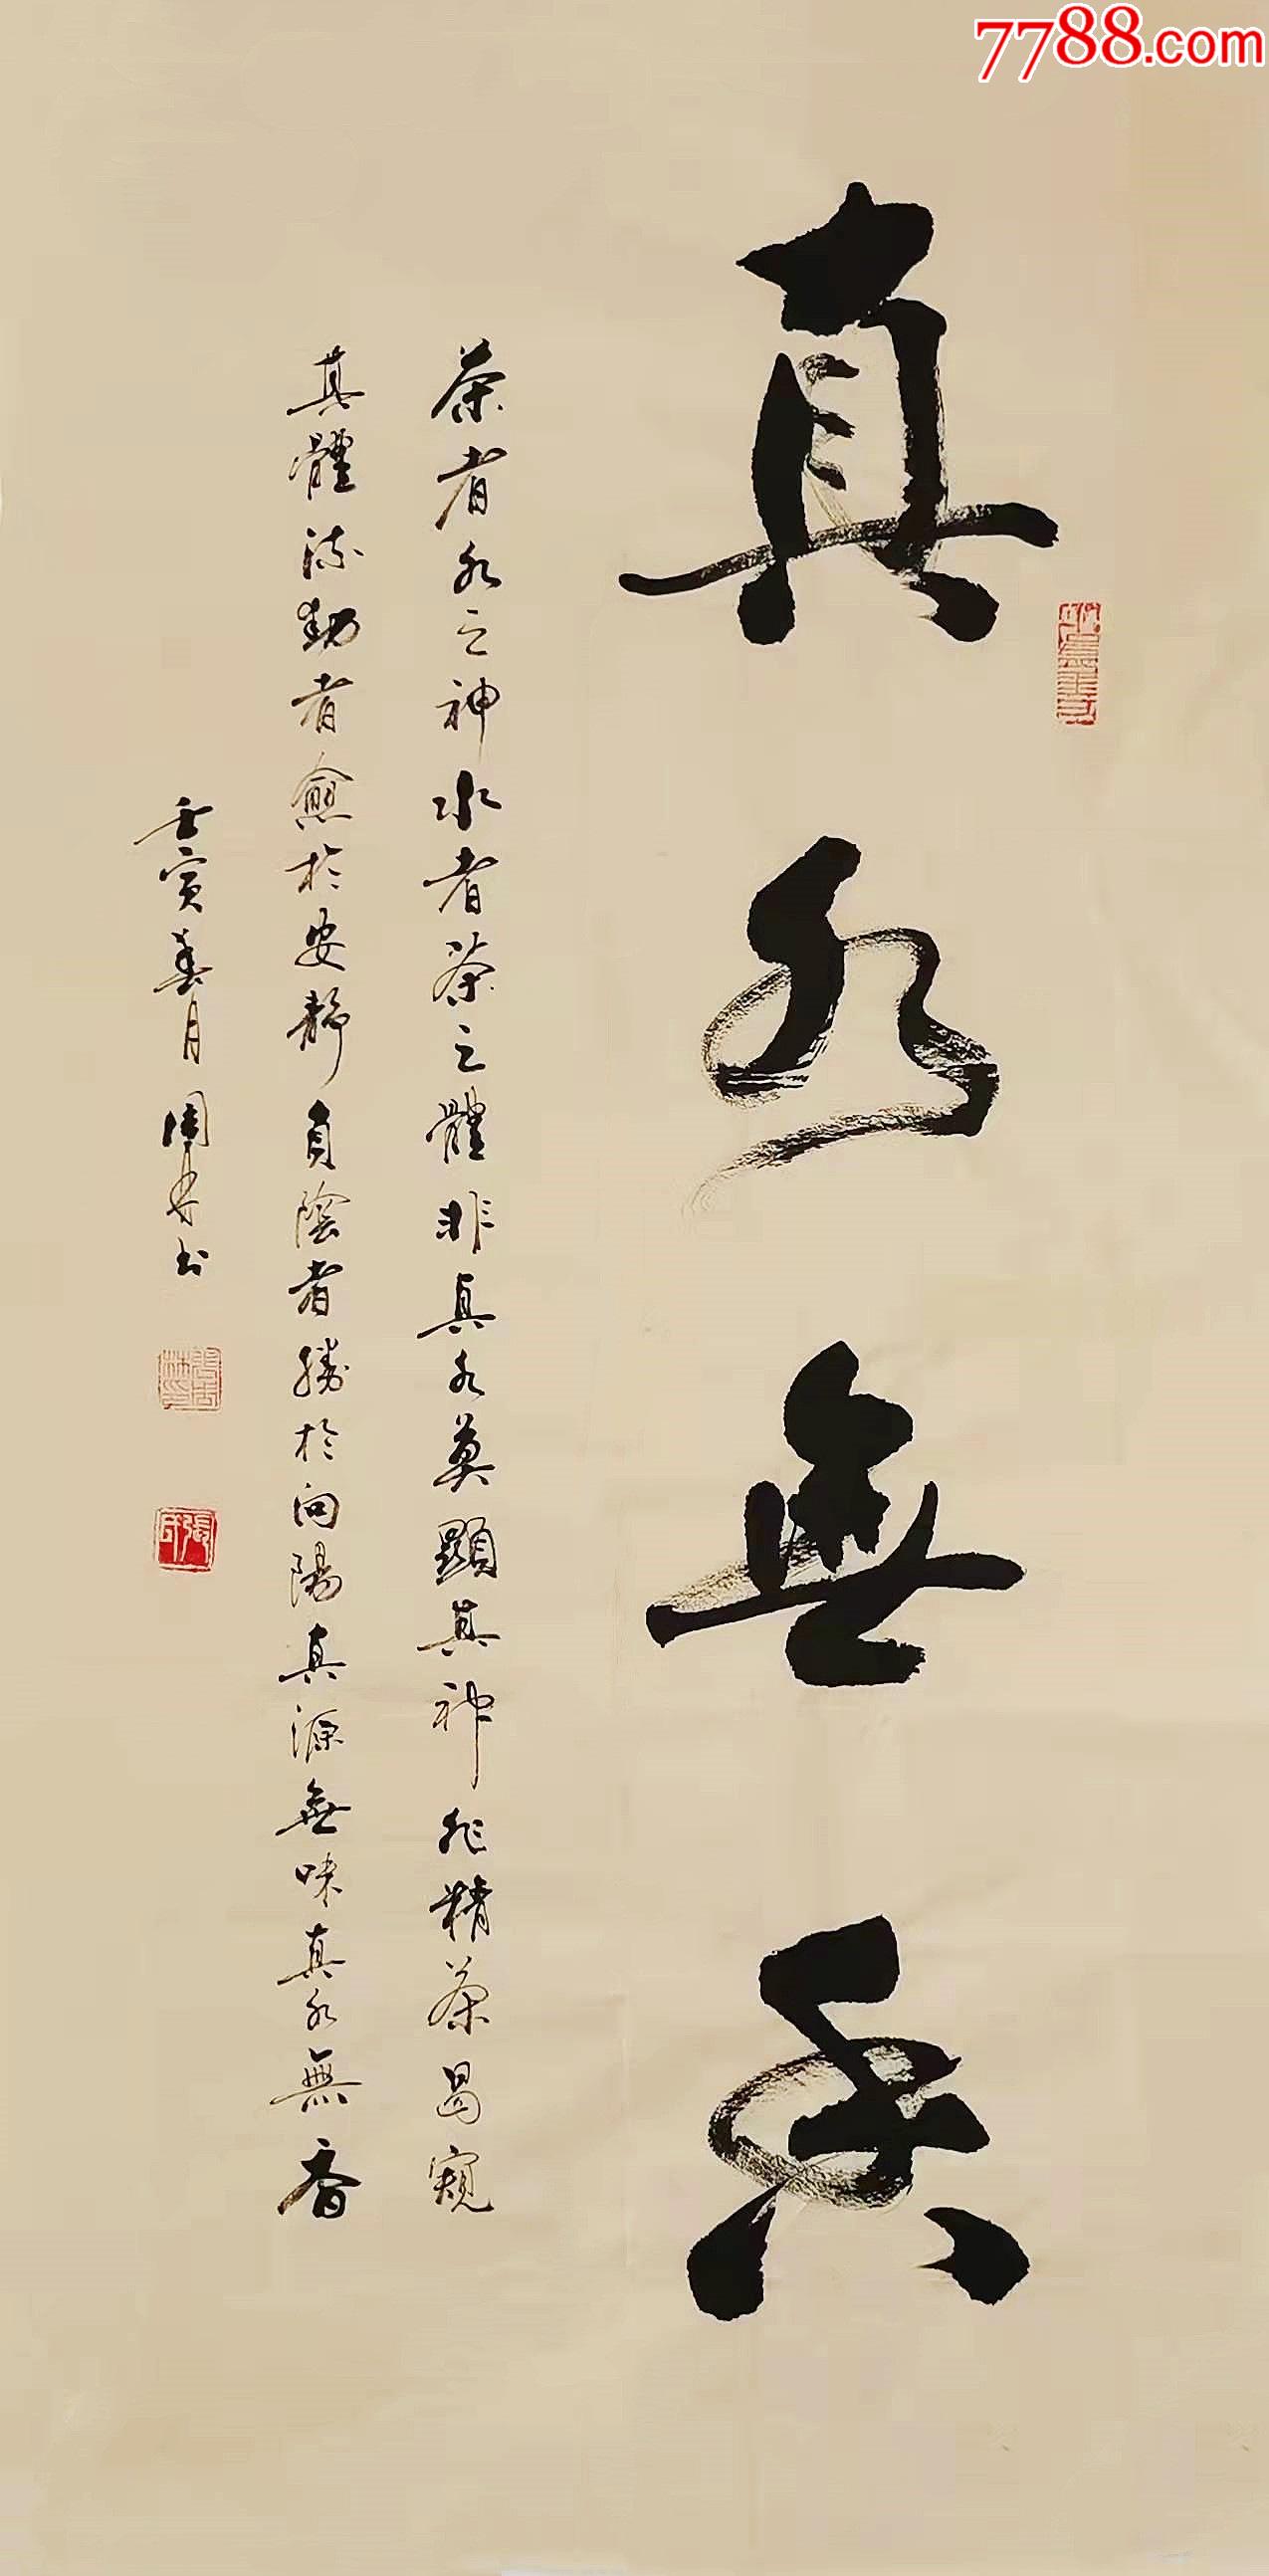 7788.com
真水無香
茶者水之神水者茶之體非真水莫顯其神非精茶曷窺
其體流動者愈於安靜負陰者勝於向陽真源無味真水無香
壬寅春月周林书